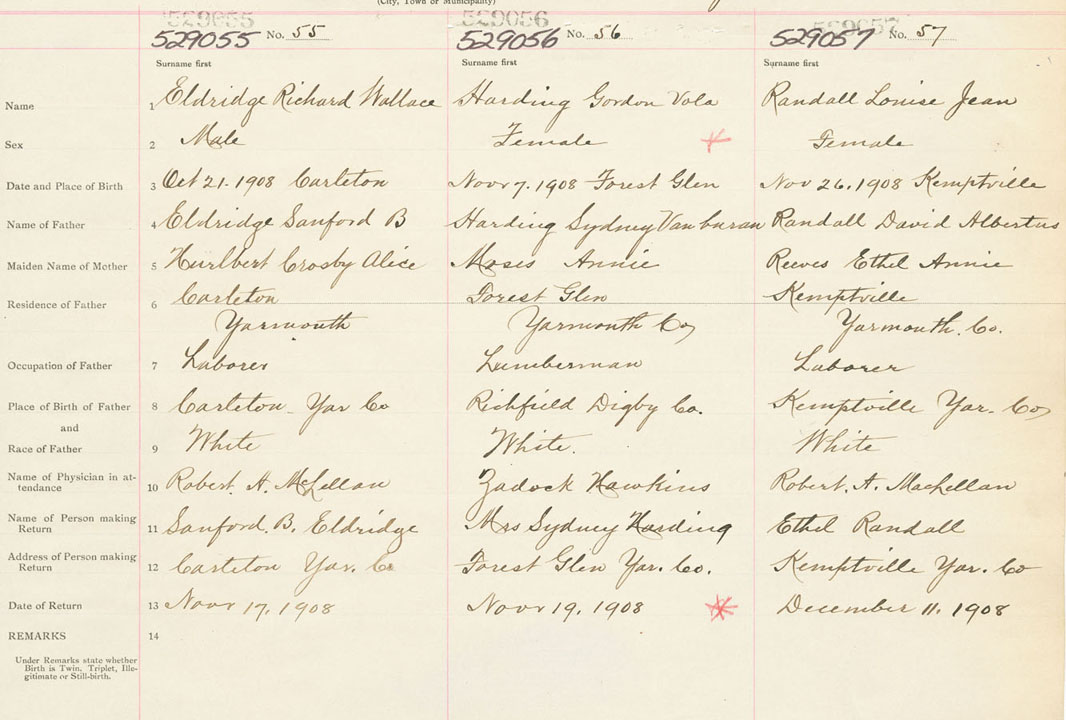 (City, Town or Municipality)
529055 529056 529057
529055 No. 55 529056 No. 56 529057 No. 57
Surname first Surname first Surname first
Name 1 Eldridge Richard Wallace Harding Gordon Vola Randall Louise Jean
Sex 2 Male Female Female
Date and Place of Birth 3 Oct 21. 1908 Carleton Novr 7. 1908 Forest Glen Nov 26. 1908 Kemptville
Name of Father 4 Eldridge Sanford B Harding Sydney Vanburan Randall David Albertus
Maiden Name of Mother 5 Hurlbert Crosby Alice Moses Annie Reeves Ethel Annie
Residence of Father 6 Carleton Forest Glen Kemptville
Yarmouth Yarmouth Co, Yarmouth. Co.
Occupation of Father 7 Laborer Lumberman Laborer
Place of Birth of Father 8 Carleton Yar Co Richfield Digby Co. Kemptville Yar. Co,
and
Race of Father 9 White White. White
Name of Physician in at- 10 Robert. H. McLellan Zadock Hawkins Robert. A. MacLellan
tendance
Name of Person making 11 Sanford. B. Eldridge Mrs Sydney Harding Ethel Randall
Return
Address of Person making 12 Carleton Yar. Co Forest Glen Yar. Co. Kemptville Yar. Co
Return
Date of Return 13 Novr 17, 1908 Novr 19, 1908 December 11, 1908
REMARKS 14
Under Remarks state whether
Birth is Twin, Triplet, Ille-
gitimate or Still-birth.